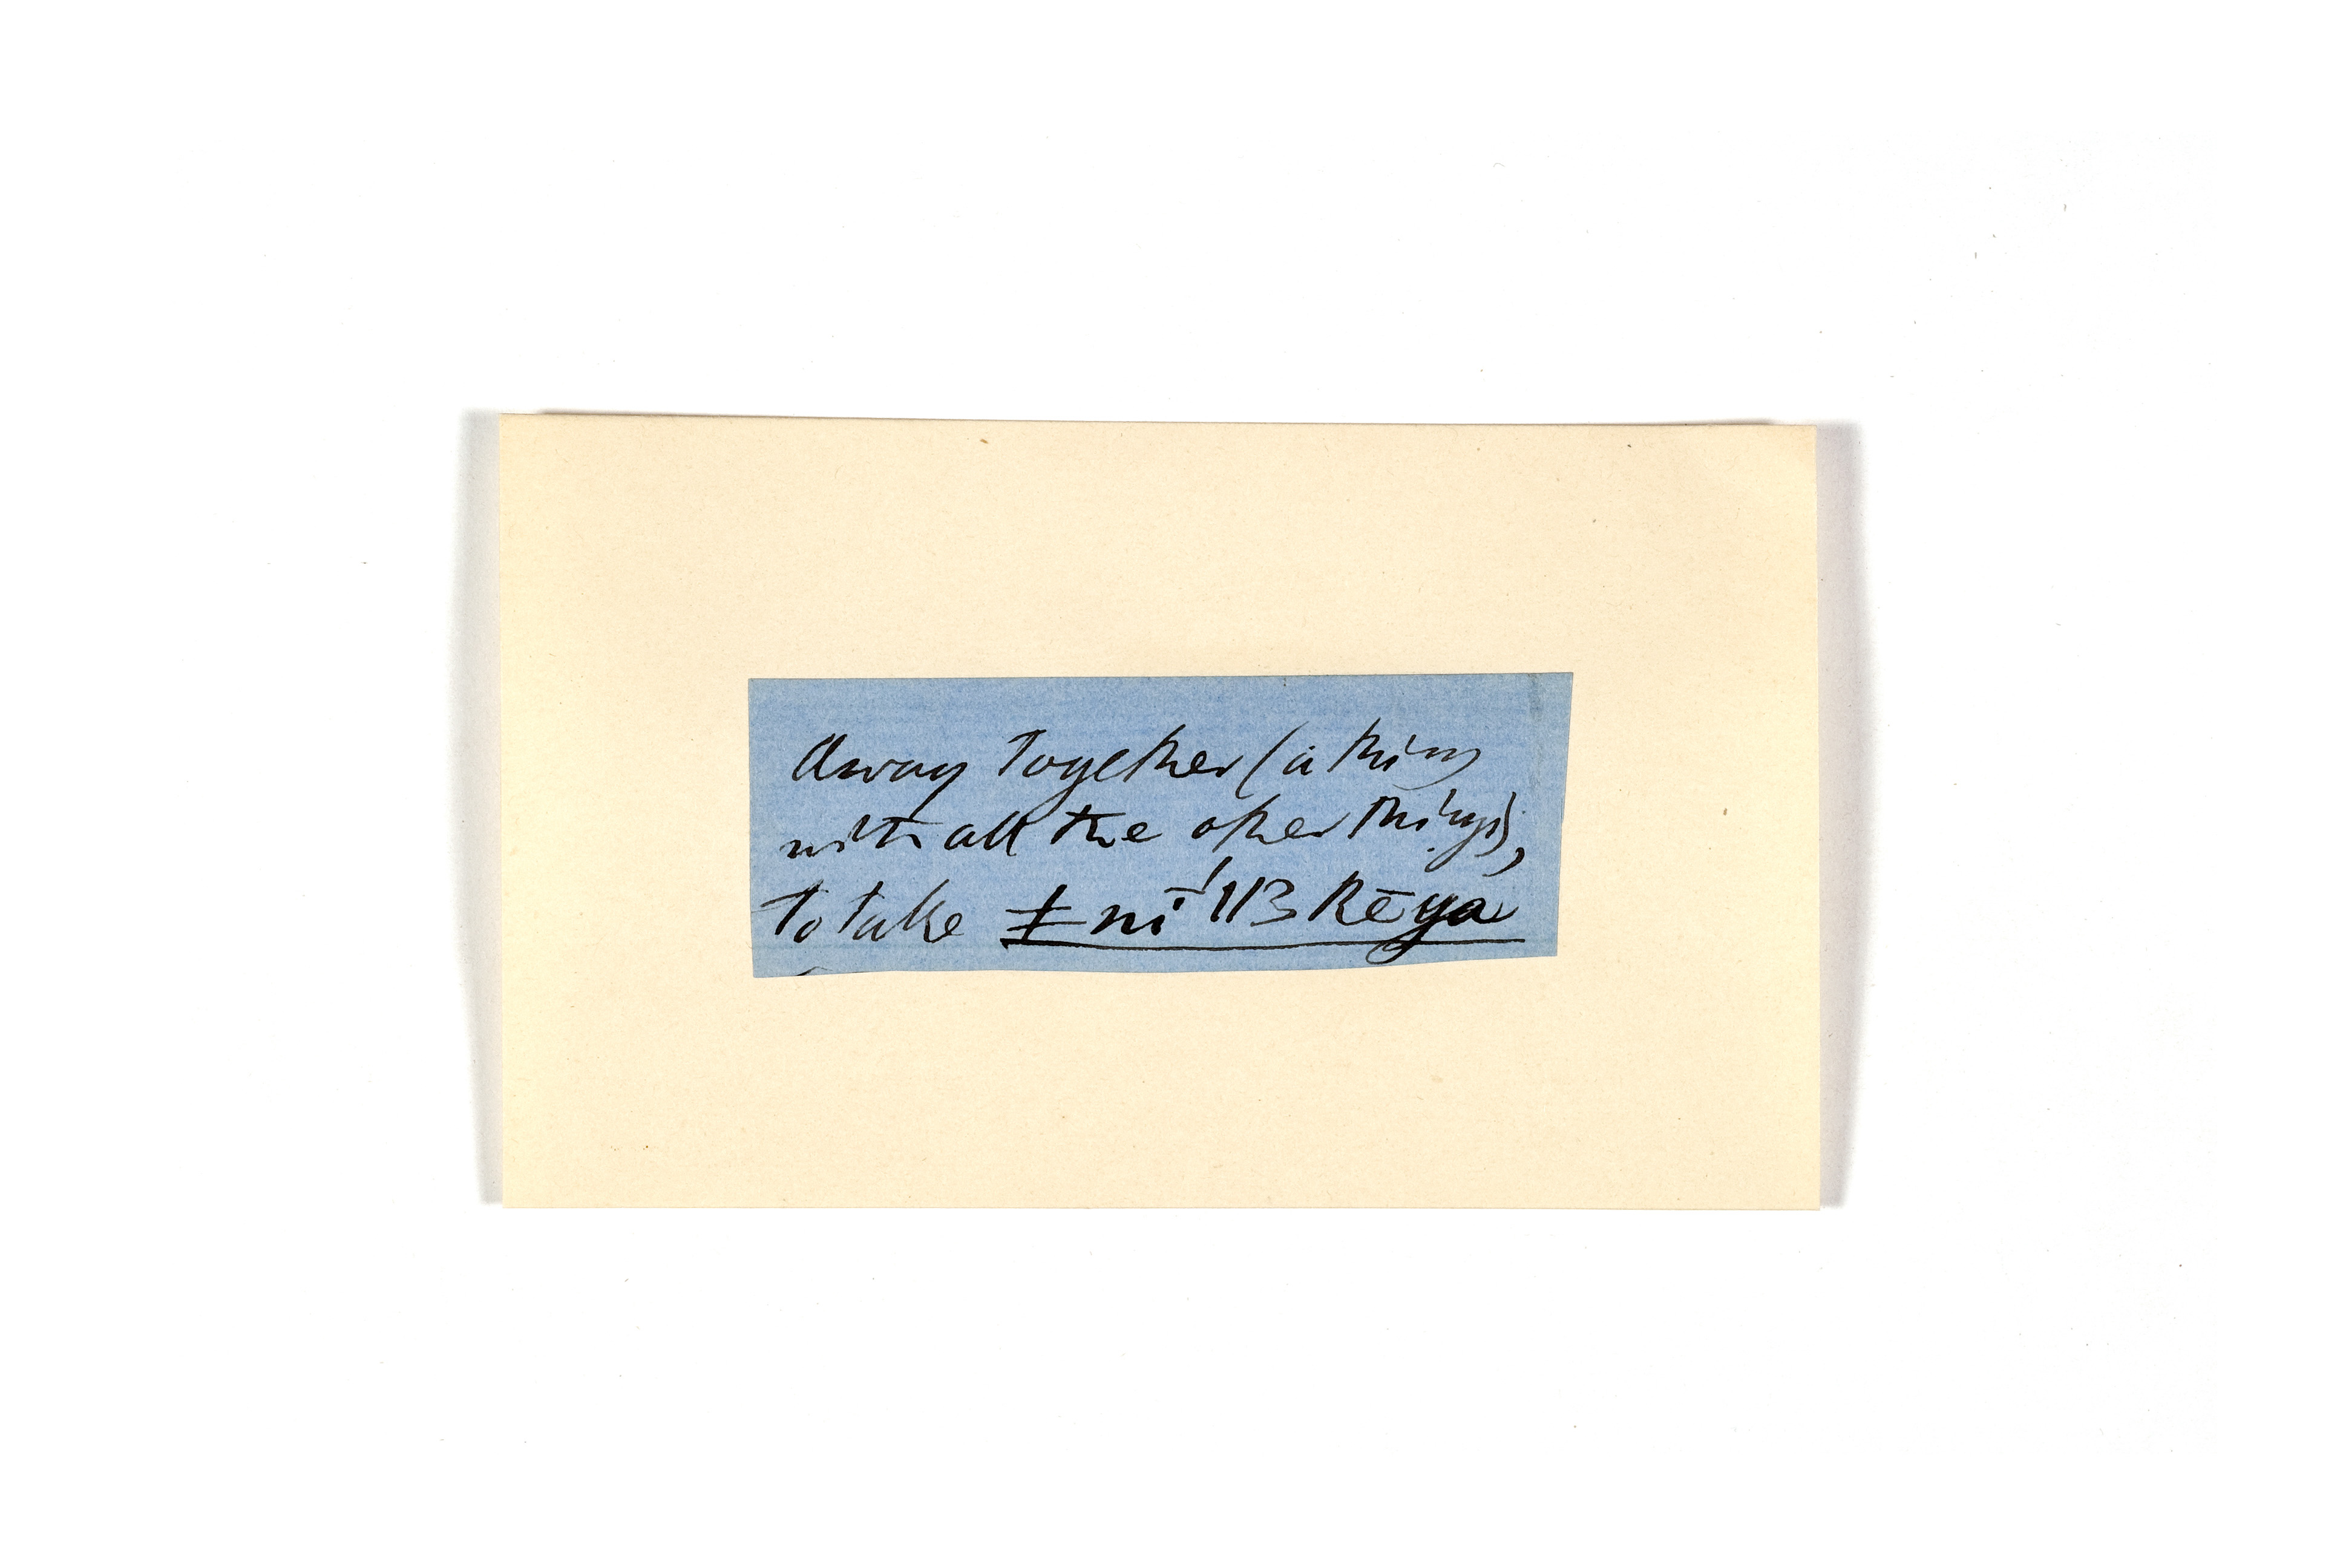 Away together (a thing
with all the other things),
To take ǂ nī ǁ3 kēya